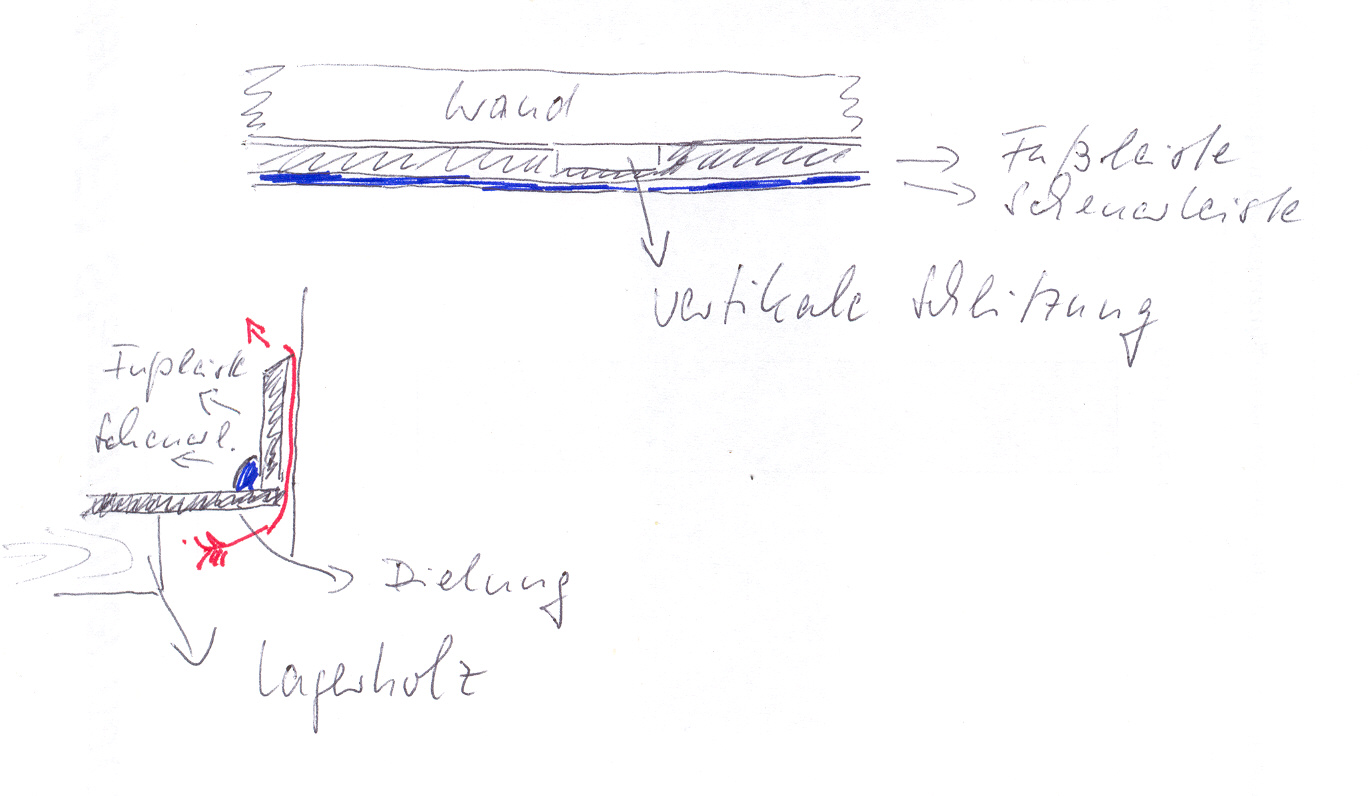 Wand
Fußleiste
Scheuerleiste
vertikale Schlitzung
Fußleiste
Scheuerl.
Dielung
Lagerholz